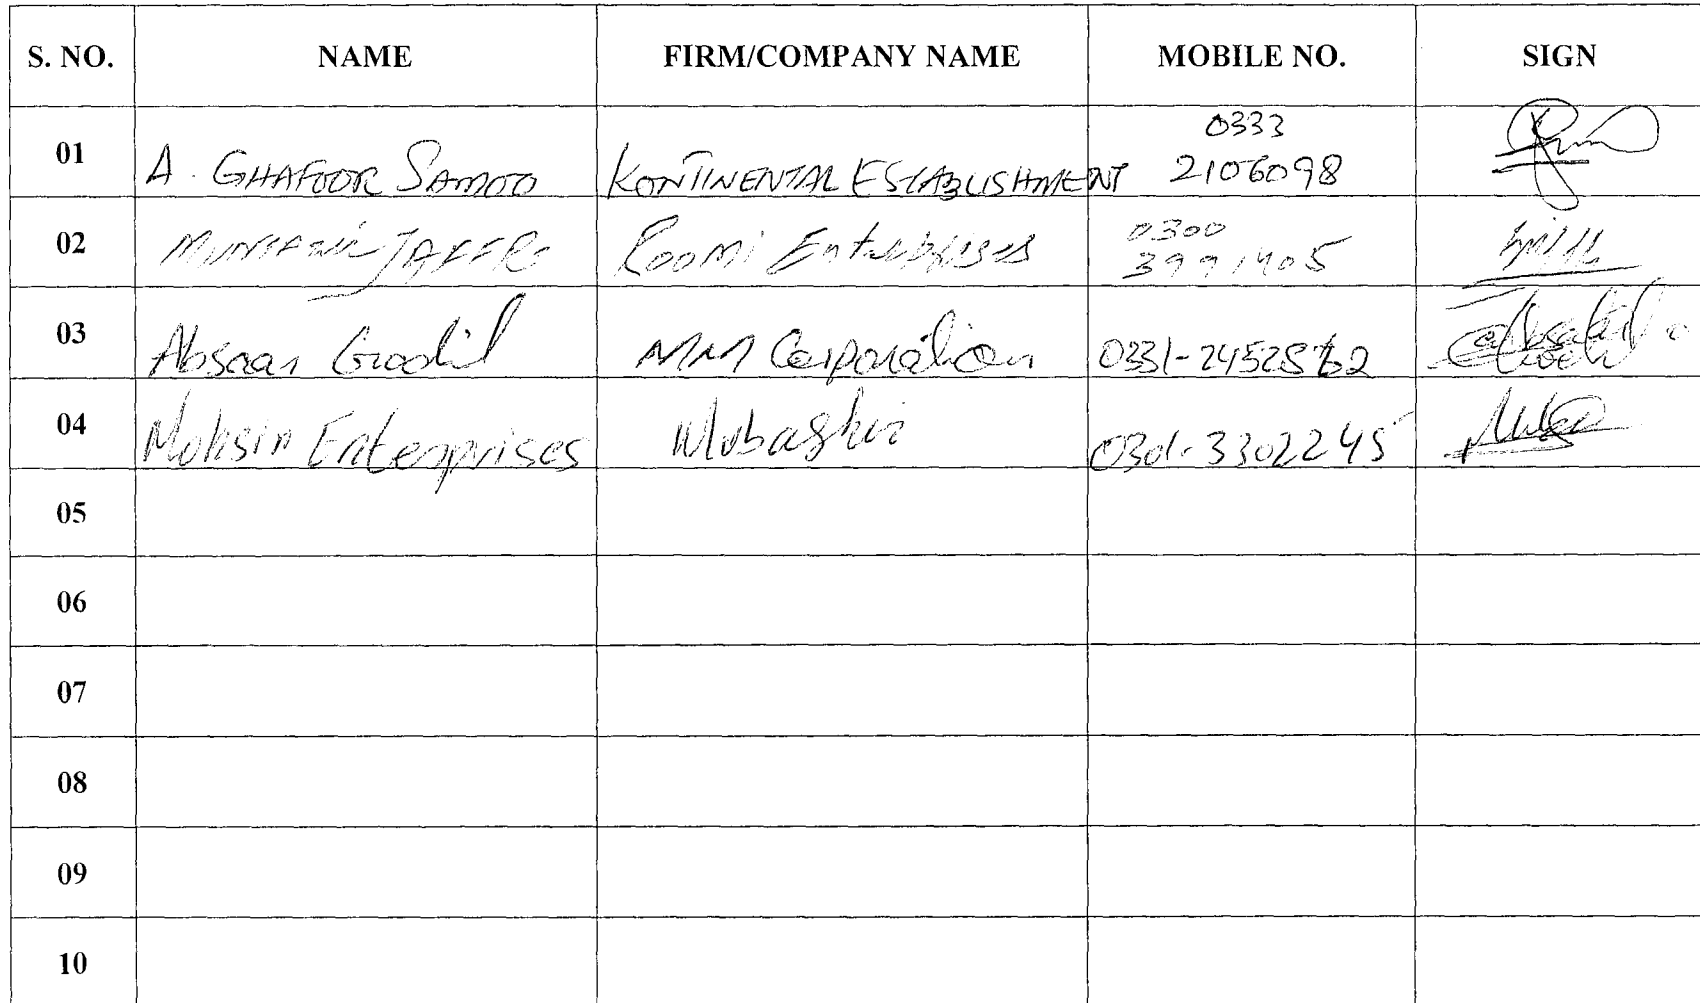 S. NO. NAME FIRM/COMPANY NAME MOBILE NO. SIGN
01 A. GHAFOOR SAMOO KONTINENTAL ESTABLISHMENT 0333
2106098
02 JAFFRI Roomi Enterprises 0300
3991405
03 Absaar Godil MM Corporation 0331-24528
04 Mohsin Enterprises Mubashir 0301-3302245
05
06
07
08
09
10